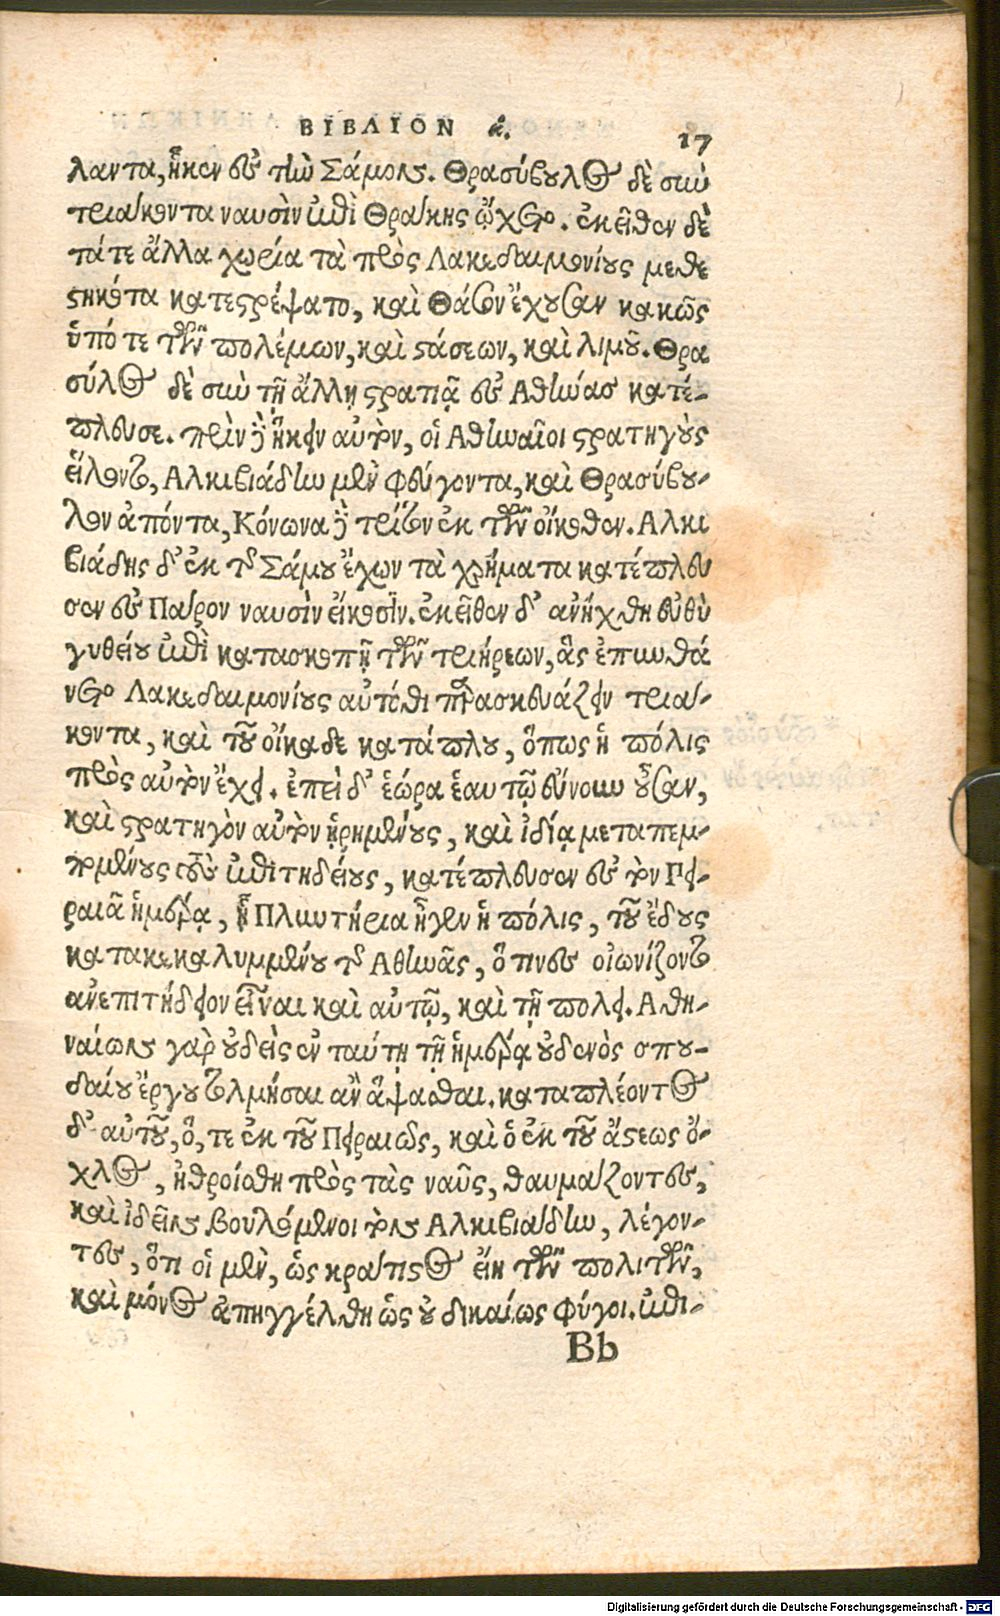 ΒΙΒΛΙΟΝ α. 17
λαντα, ἧκεν εἰς τὴν Σάμον. Θρασύβουλος δὲ σὺν
τριάκοντα ναυσὶν ἐπὶ Θράκης ᾤχετο. ἐκεῖθεν δὲ
τά τε ἄλλα χωρία τὰ πρὸς Λακεδαιμονίους μεθε
στηκότα κατεστρέψατο, καὶ Θάσον ἔχουσαν κακῶς
ὑπό τε τῶν πολέμων, καὶ στάσεων, καὶ λιμοῦ. Θρα
σύλος δὲ σὺν τῇ ἄλλῃ στρατιᾷ εἰς Ἀθήνας κατέ-
πλευσε. πρὶν δὲ ἥκειν αὐτὸν, οἱ Ἀθηναῖοι στρατηγοὺς
εἵλοντο, Ἀλκιβιάδην μὲν φεύγοντα, καὶ Θρασύβου-
λον ἀπόντα, Κόνωνα δὲ τρίτον ἐκ τῶν οἴκοθεν. Ἀλκι
βιάδης δ' ἐκ τῆς Σάμου ἔχων τὰ χρήματα κατέπλευ
σεν εἰς Πάρον ναυσὶν εἴκοσιν. ἐκεῖθεν δ' ἀνήχθη εὐθὺ
γυθείου ἐπὶ κατασκοπῇ τῶν τριήρεων, ἃς ἐπυνθά
νετο Λακεδαιμονίους αὐτόθι παρασκευάζειν τριά-
κοντα, καὶ τοῦ οἴκαδε κατάπλου, ὅπως ἡ πόλις
πρὸς αὐτὸν ἔχει. ἐπεὶ δ' ἑώρα ἑαυτῷ εὔνουν οὖσαν,
καὶ στρατηγὸν αὐτὸν ᾑρημένους, καὶ ἰδίᾳ μεταπεμ-
πομένους τοὺς ἐπιτηδείους, κατέπλευσεν εἰς τὸν Πει-
ραιᾶ ἡμέρᾳ, ᾗ Πλυντήρια ἦγεν ἡ πόλις, τοῦ ἕδους
κατακεκαλυμμένου τῆς Ἀθηνᾶς, ὅ τινες οἰωνίζοντο
ἀνεπιτήδειον εἶναι καὶ αὐτῷ, καὶ τῇ πόλει. Ἀθη-
ναίων γὰρ οὐδεὶς ἐν ταύτῃ τῇ ἡμέρᾳ οὐδενὸς σπου-
δαίου ἔργου τολμήσαι ἂν ἅψασθαι. καταπλέοντος
δ' αὐτοῦ, ὅ, τε ἐκ τοῦ Πειραιῶς, καὶ ὁ ἐκ τοῦ ἄστεως ὄ-
χλος, ἠθροίσθη πρὸς τὰς ναῦς, θαυμάζοντες,
καὶ ἰδεῖν βουλόμενοι τὸν Ἀλκιβιάδην, λέγον-
τες, ὅτι οἱ μὲν, ὡς κράτιστος εἴη τῶν πολιτῶν,
καὶ μόνος ἀπηγγέλθη ὡς οὐ δικαίως φύγοι. ἐπι-
Bb
Digitalisierung gefördert durch die Deutsche Forschungsgemeinschaft - DFG